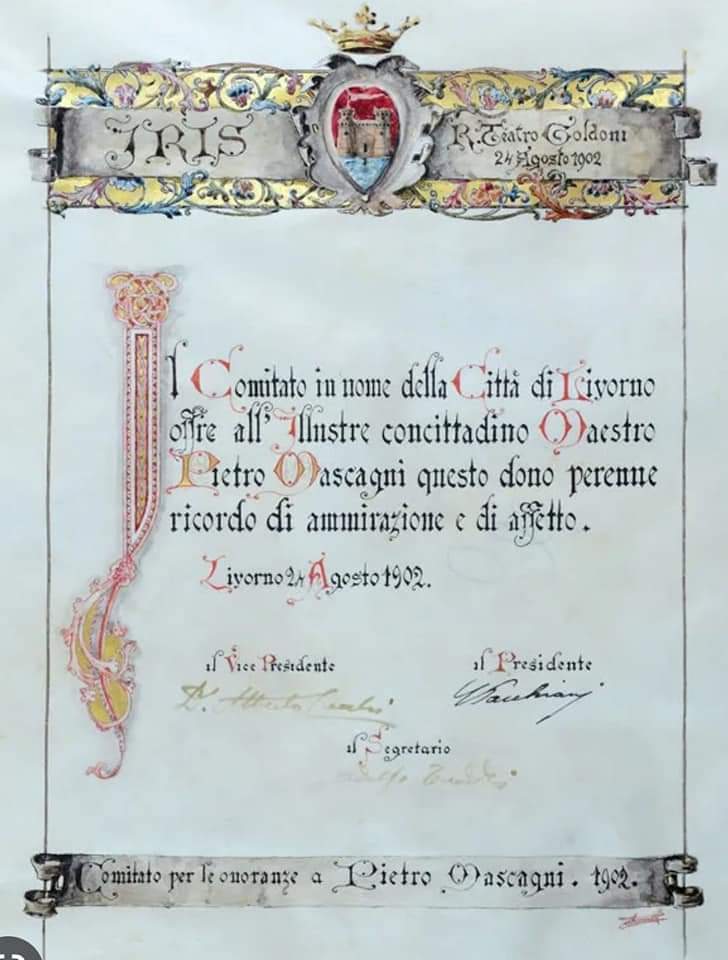 IRIS
R. Teatro Goldoni
24 Agosto 1902
Il Comitato in nome della Città di Livorno
offre all' Illustre concittadino Maestro
Pietro Mascagni questo dono perenne
ricordo di ammirazione e di affetto.
Livorno 24 Agosto 1902.
il Vice Presidente
il Presidente
Dr. Alberto
il Segretario
Comitato per le onoranze a Pietro Mascagni. 1902.